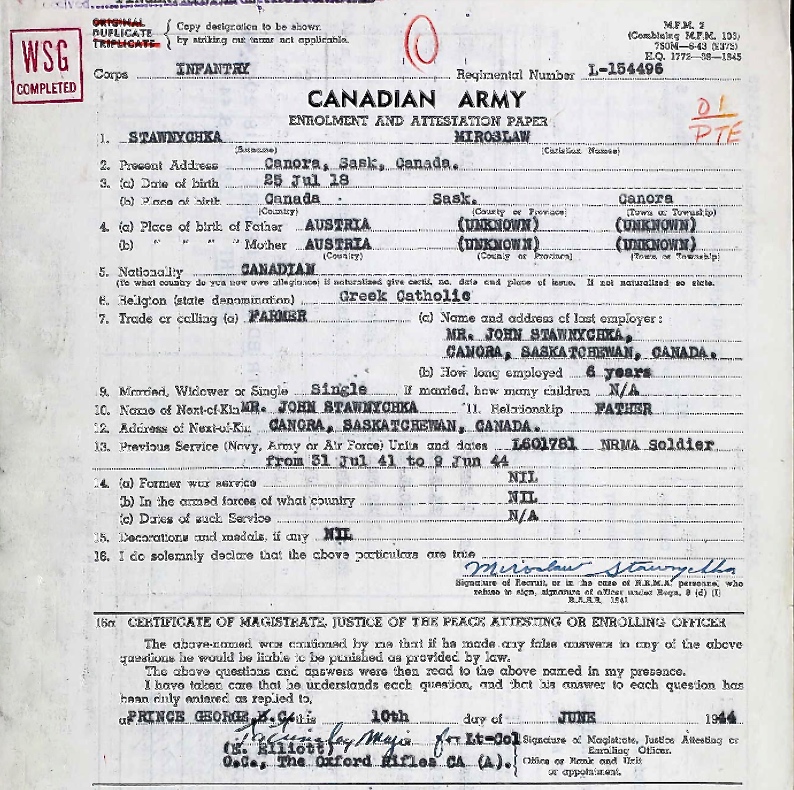 ORIGINAL
DUPLICATE
TRIPLICATE
Copy designation to be shown.
by striking out terms not applicable.
M.F.M. 2
(Combining M.F.M. 103)
750M—6-43 (5375)
H.Q. 1772—39—1845
WSG
COMPLETED
Corps INFANTRY Regimental Number L-154496
CANADIAN ARMY
ENROLMENT AND ATTESTATION PAPER
01
PTE
1. STAWNYCHKA MIROSLAW
(Surname) (Christian Names)
2. Present Address Canora, Sask, Canada.
3. (a) Date of birth 25 Jul 18
(b) Place of birth Canada Sask. Canora
(Country) (County or Province) (Town or Township)
4. (a) Place of birth of Father AUSTRIA (UNKNOWN) (UNKNOWN)
(b) " " " " Mother AUSTRIA (UNKNOWN) (UNKNOWN)
(Country) (County or Province) (Town or Township)
5. Nationality CANADIAN
(To what country do you now owe allegiance) if naturalized give certif. no. date and place of issue. If not naturalized so state.
6. Religion (state denomination) Greek Catholic
7. Trade or calling (a) FARMER (c) Name and address of last employer:
MR. JOHN STAWNYCHKA,
CANORA, SASKATCHEWAN, CANADA.
(b) How long employed 6 years
9. Married, Widower or Single Single If married, how many children N/A
10. Name of Next-of-Kin MR. JOHN STAWNYCHKA 11. Relationship FATHER
12. Address of Next-of-Kin CANORA, SASKATCHEWAN, CANADA.
13. Previous Service (Navy, Army or Air Force) Units and dates L601781 NRMA Soldier
from 31 Jul 41 to 9 Jun 44
14. (a) Former war service NIL
(b) In the armed forces of what country NIL
(c) Dates of such Service N/A
15. Decorations and medals, if any NIL
16. I do solemnly declare that the above particulars are true
Miroslaw Stawnychka
Signature of Recruit, or in the case of N.R.M.A. personnel, who
refuse to sign, signature of officer under Regn. 8 (d) (1)
16a CERTIFICATE OF MAGISTRATE, JUSTICE OF THE PEACE ATTESTING OR ENROLLING OFFICER
The above-named was cautioned by me that if he made any false answers to any of the above
questions he would be liable to be punished as provided by law.
The above questions and answers were then read to the above named in my presence.
I have taken care that he understands each question, and that his answer to each question has
been duly entered as replied to,
at PRINCE GEORGE, B.C. this 10th day of JUNE 1944
Major for Lt-Col Signature of Magistrate, Justice Attesting or
Enrolling Officer.
(E. Elliott)
O.C., The Oxford Rifles CA (A). Office or Rank and Unit
or appointment.